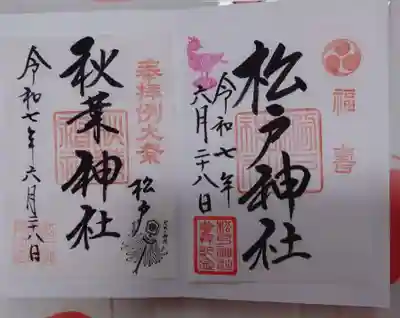 福喜
松戸神社
令和七年
六月二十八日
奉拝例大祭
松戸
秋葉神社
令和七年六月二十八日